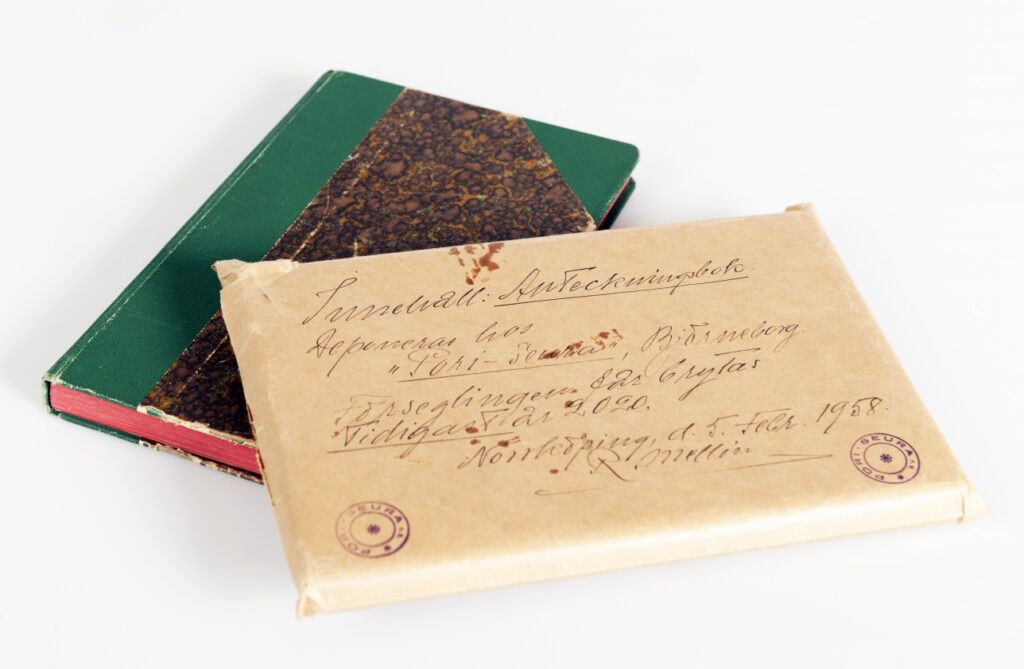 Innehåll: Anteckningsbok.
Deponeras hos
"Pori-Seura", Björneborg.
Förseglingen får brytas
tidigast år 2020.
Norrköping, d. 5. Febr. 1958.
R. Mellin
PORI-SEURA r.y.
PORI-SEURA r.y.